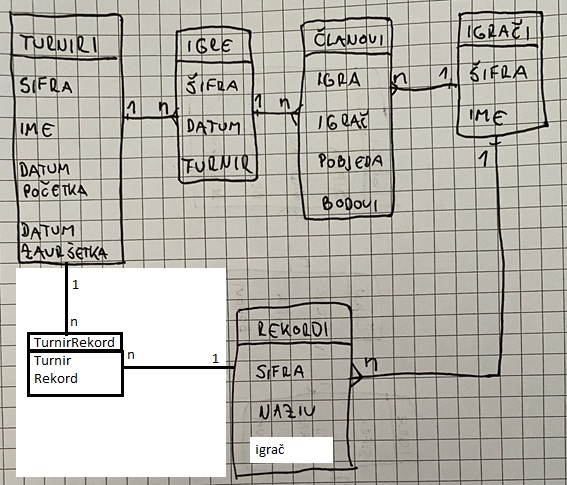 TURNIRI
ŠIFRA
IME
DATUM
POČETKA
DATUM
ZAVRŠETKA
1
n
IGRE
ŠIFRA
DATUM
TURNIR
1
n
ČLANOVI
IGRA
IGRAČ
POBJEDA
BODOVI
n
1
IGRAČI
ŠIFRA
IME
1
1
n
TurnirRekord
Turnir
Rekord
n
1
REKORDI
ŠIFRA
NAZIV
igrač
n